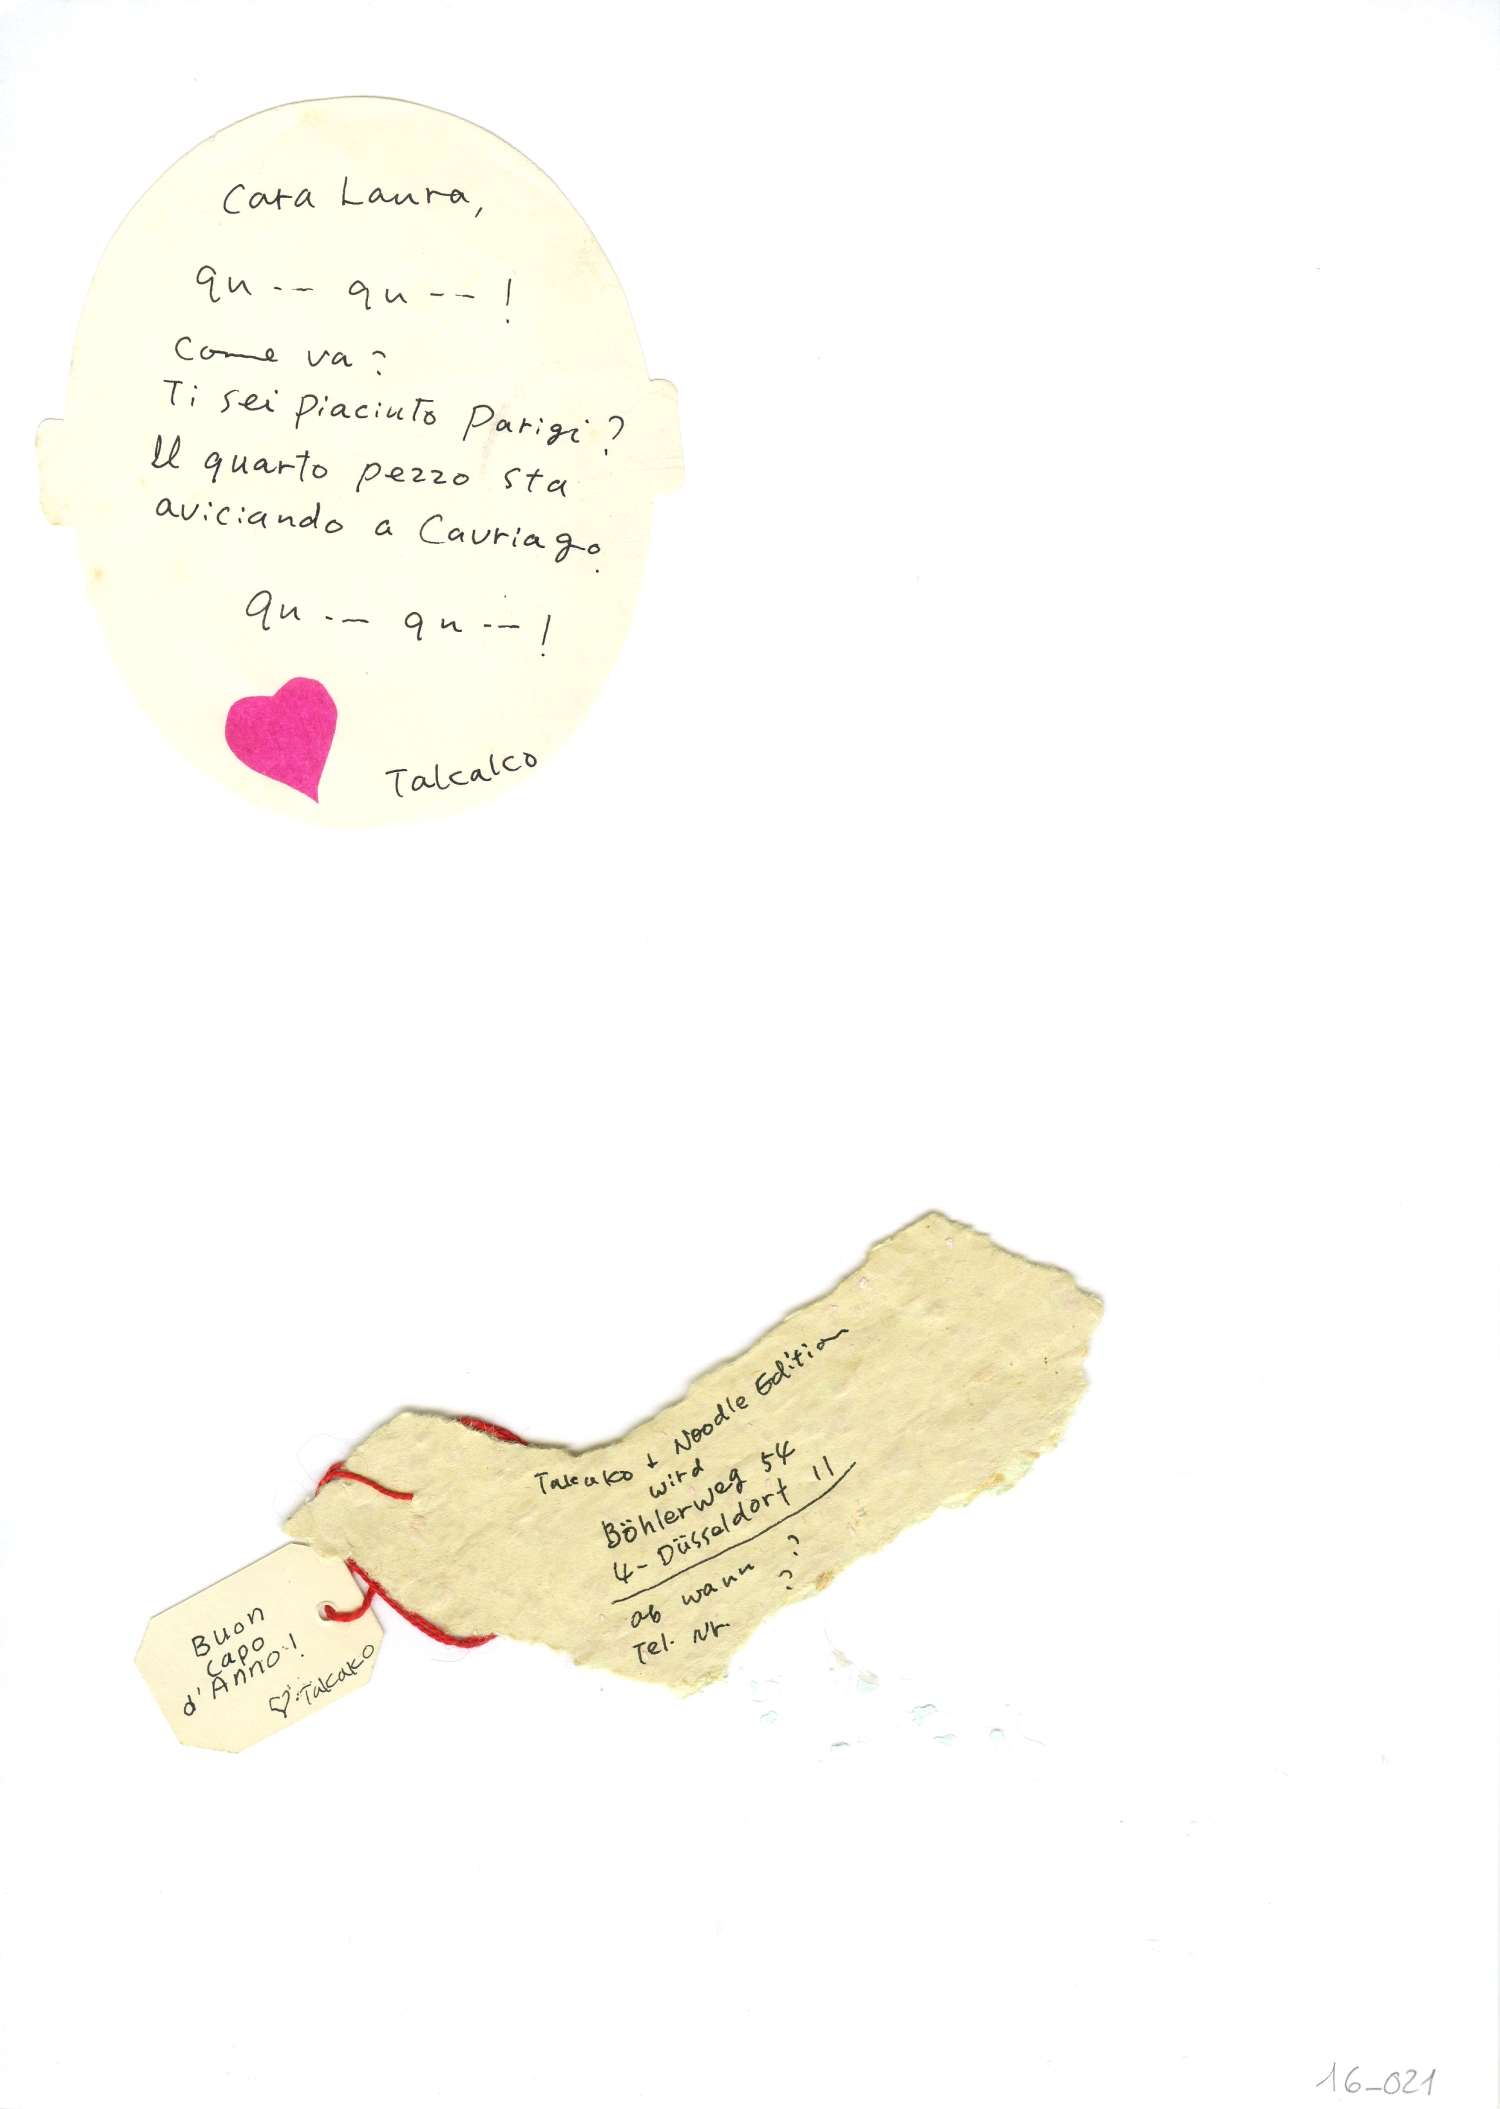 Cara Laura,
qu -- qu -- !
Come va?
Ti sei piaciuto Parigi?
Il quarto pezzo sta
aviciando a Cavriago.
qu -- qu -- !
Takako
Takako + Noodle Edition
wird
Böhlerweg 54
4- Düsseldorf 11
ab wann ?
Tel. Nr. ?
Buon
capo
d'Anno!
♡ Takako
16_021